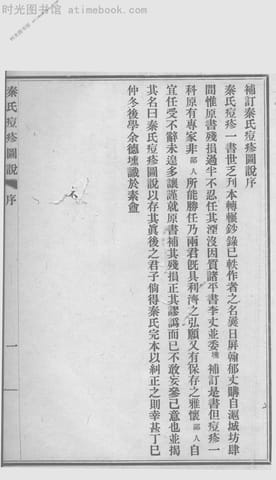 时光图书馆 www.atimebook.com
时光图书馆
atimebook.com
補訂秦氏痘疹圖說序
秦氏痘疹一書世乏刊本轉輾鈔錄已軼作者之名冀日屏翰郁丈購自滬城坊肆
間惟原書殘損過半不忍任其湮沒因質諸平書李丈並委壎補訂是書但痘疹一
科原有專家非鄙人所能勝任乃兩君旣具利濟之弘願又有保存之雅懷鄙人自
宜任受不辭未遑多讓謹就原書補其殘損正其謬譌而已不敢妄參己意也並揭
其名曰秦氏痘疹圖說以存其眞後之君子倘得秦氏完本以糾正之則幸甚丁巳
仲冬後學余德壎識於素盦
秦氏痘疹圖說 序
一